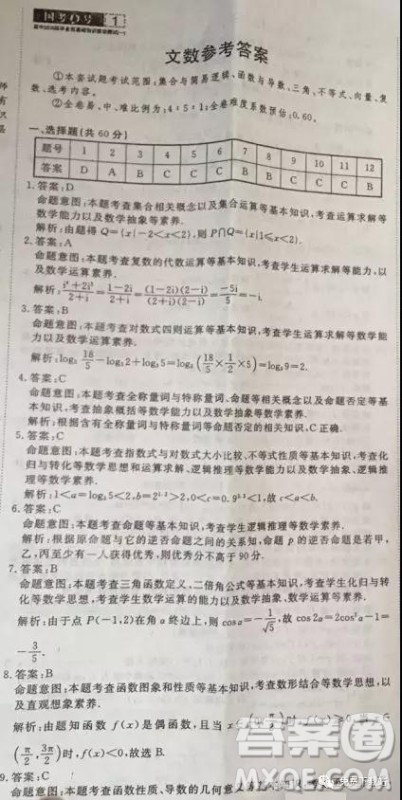 国考1号 1
文数参考答案
①本套试题考试范围:集合与简易逻辑、函数与导数、三角、不等式、向量、复
数、选考内容.
②全卷易、中、难比例为:4:5:1;全卷难度系数预估:0.60.
一、选择题(共60分)
题号 1 2 3 4 5 6 7 8 9 10 11 12
答案 D A B C C C B B C C C B
1.答案:D
命题意图:本题考查集合相关概念以及集合运算等基本知识,考查运算求解等
数学能力以及数学抽象等素养.
解析:由题得Q={x|-2<x<2},则P∩Q={x|1≤x<2}.
2.答案:A
命题意图:本题考查复数的代数运算等基本知识,考查学生运算求解等能力,以
及数学运算素养.
解析:(i⁴+2i³)/(2+i)=(1-2i)/(2+i)=(1-2i)(2-i)/(2+i)(2-i)=-5i/5=-i.
3.答案:B
命题意图:本题考查对数式四则运算等基本知识,考查学生运算求解等数学能
力以及数学运算素养.
解析:log₃ 18/5 -log₃2+log₃5=log₃(18/5×1/2×5)=log₃9=2.
4.答案:C
命题意图:本题考查全称量词与特称量词、命题等相关概念以及命题否定等基
本知识,考查抽象概括等数学能力以及数学抽象等数学素养.
解析:根据含有全称量词与特称量词等命题否定的相关知识,C正确.
5.答案:C
命题意图:本题考查指数式与对数式大小比较、不等式性质等基本知识,考查化
归与转化等数学思想和运算求解、逻辑推理等数学能力以及数学抽象、逻辑推
理等数学素养.
6.答案:C
命题意图:本题考查命题等基本知识,考查学生逻辑推理等数学素养.
解析:根据原命题与它的逆否命题之间的关系知,命题p的逆否命题是若甲,
乙,丙至少有一人获得优秀,则优秀分不高于90分.
7.答案:B
命题意图:本题考查三角函数定义、二倍角公式等基本知识,考查学生化归与转
化等数学思想,考查学生数学运算的能力以及数学抽象、数学运算等素养.
解析:由于点P(-1,2)在角α终边上,则cosα=-1/√5,故cos2α=2cos²α-1=
-3/5.
8.答案:B
命题意图:本题考查函数图象和性质等基本知识,考查数形结合等数学思想,以
及直观想象素养.
解析:由题知函数f(x)是偶函数,且当x∈
(π/2,3π/2)时,f(x)<0,故选B.
9.答案:C
命题意图:本题考查函数性质、导数的几何意义